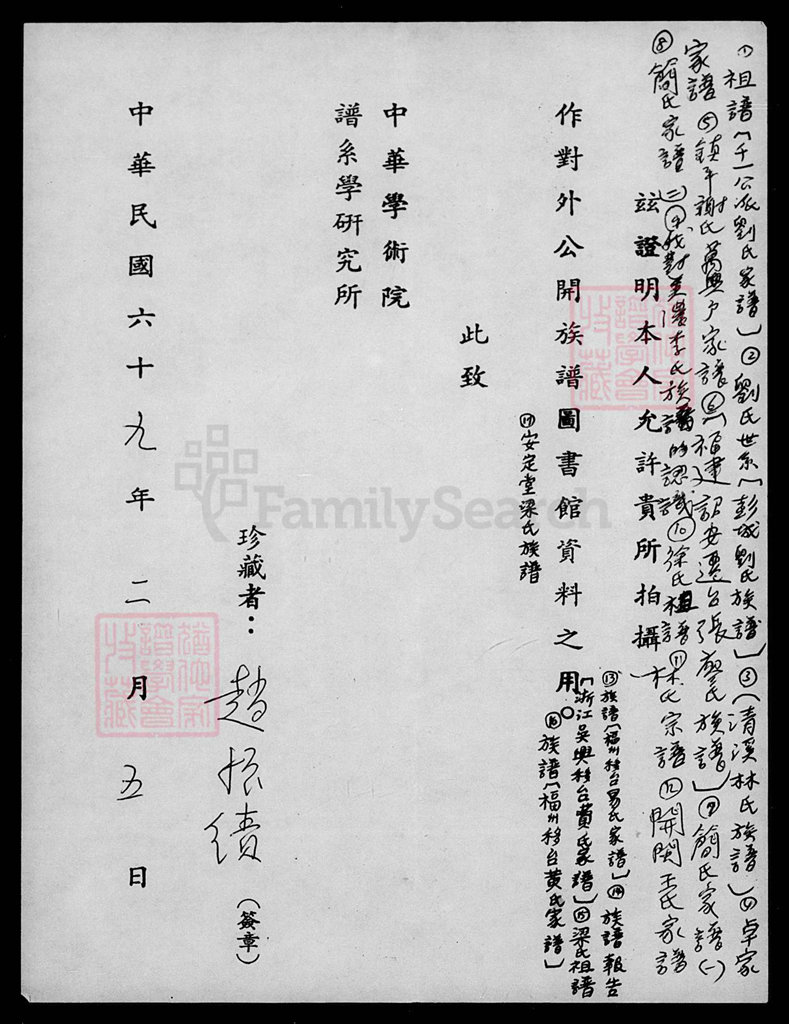 ①祖譜〔千一公派劉氏家譜〕②劉氏世系〔彭城劉氏族譜〕③〔清溪林氏族譜〕④卓家
家譜⑤鎮平謝氏萬興戶家譜⑥〔福建詔安遷台張廖氏族譜〕⑦簡氏家譜(一)
⑧簡氏家譜(二)⑨我對 李氏族譜的認識⑩徐氏祖譜⑪林氏宗譜⑫開閩王氏家譜
茲證明本人允許貴所拍攝
⑬族譜〔福州移台易氏家譜〕⑭族譜報告
作對外公開族譜圖書館資料之用。
〔浙江吳興移台黃氏家譜〕⑮梁氏祖譜
⑯族譜〔福州移台黃氏家譜〕
⑰安定堂梁氏族譜
此致
中華學術院
譜系學研究所
珍藏者：趙振績(簽章)
中華民國六十九年二月五日
譜學會
收藏
譜學會
收藏
FamilySearch